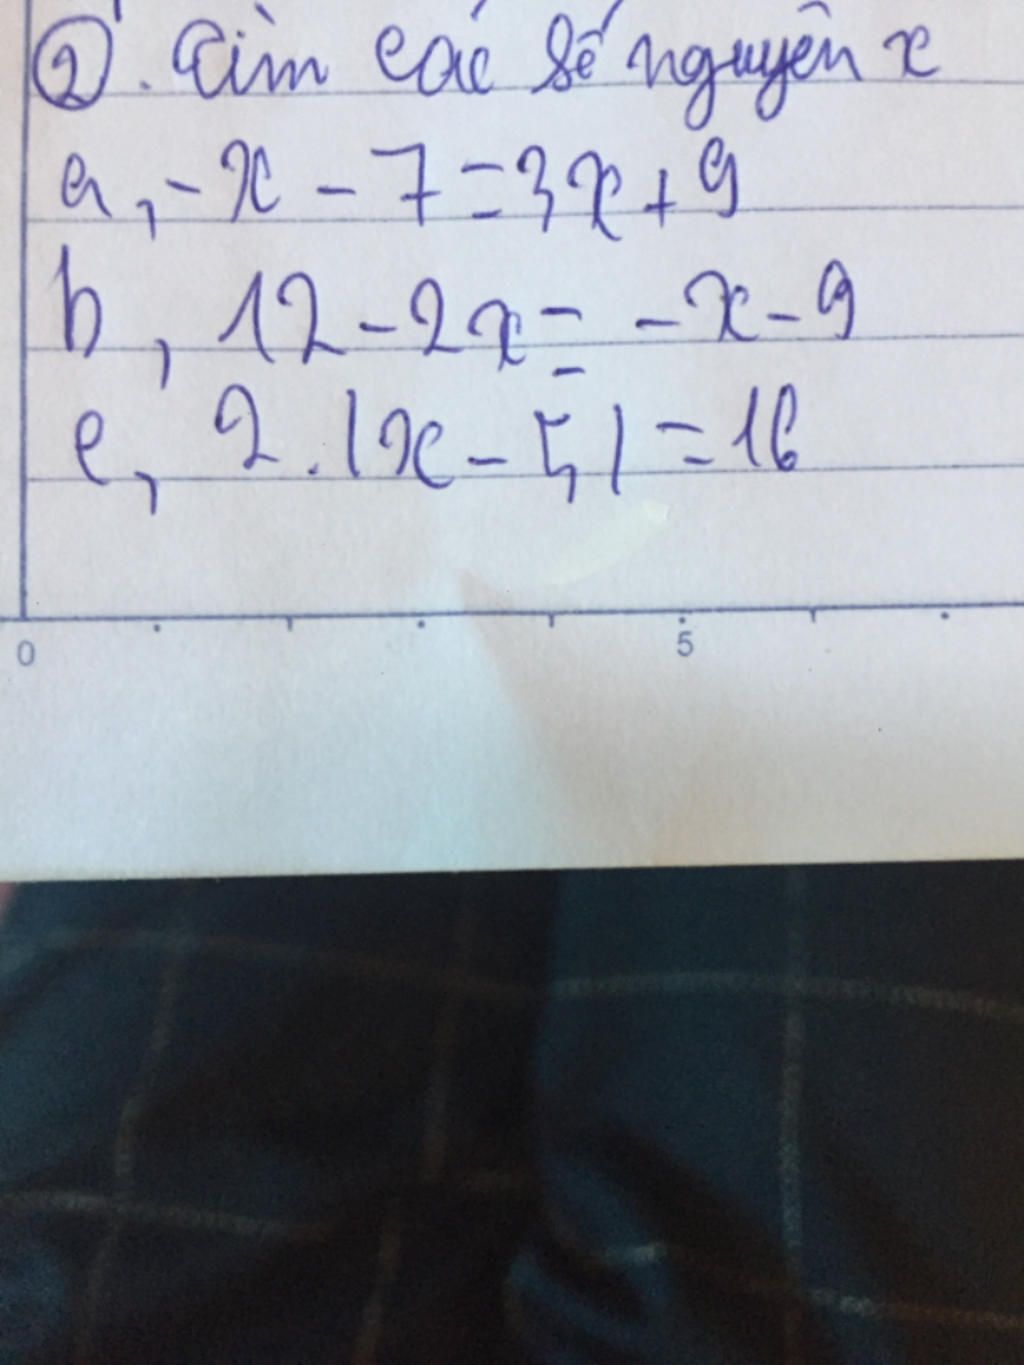 ②. Tìm các số nguyên x
a, -x - 7 = 3x + 9
b, 12 - 2x = -x - 9
c, 2. |x - 5| = 16
0 5